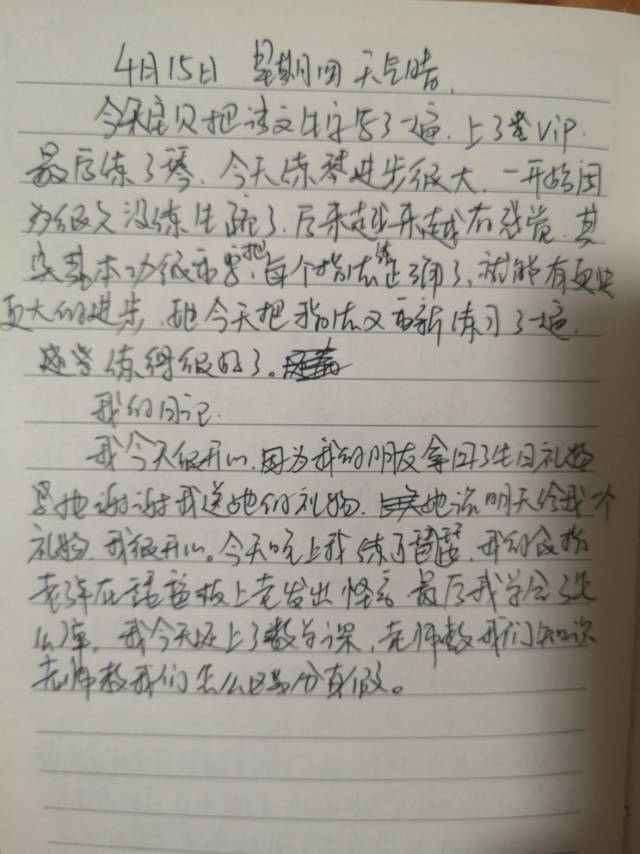 4月15日 星期四 天气晴.
今天宝贝把语文生字写了一遍.上了堂VIP.
最后练了琴.今天练琴进步很大.一开始因
为很久没练生疏了.后来越来越有感觉.其
实基本功很重要.把每个指法练正确了,就能有更快
更大的进步.她今天把指法又重新练习了一遍.
感觉练得很好了。
我的日记.
我今天很开心.因为我的朋友拿回了生日礼物
她谢谢我送她的礼物.她说明天给我一个
礼物.我很开心。今天晚上我练了琵琶.我的食指
老弹在琵琶板上老发出怪音 最后我学会了怎
么弹.我今天还上了数学课,老师教我们知识
老师教我们怎么区分真假。